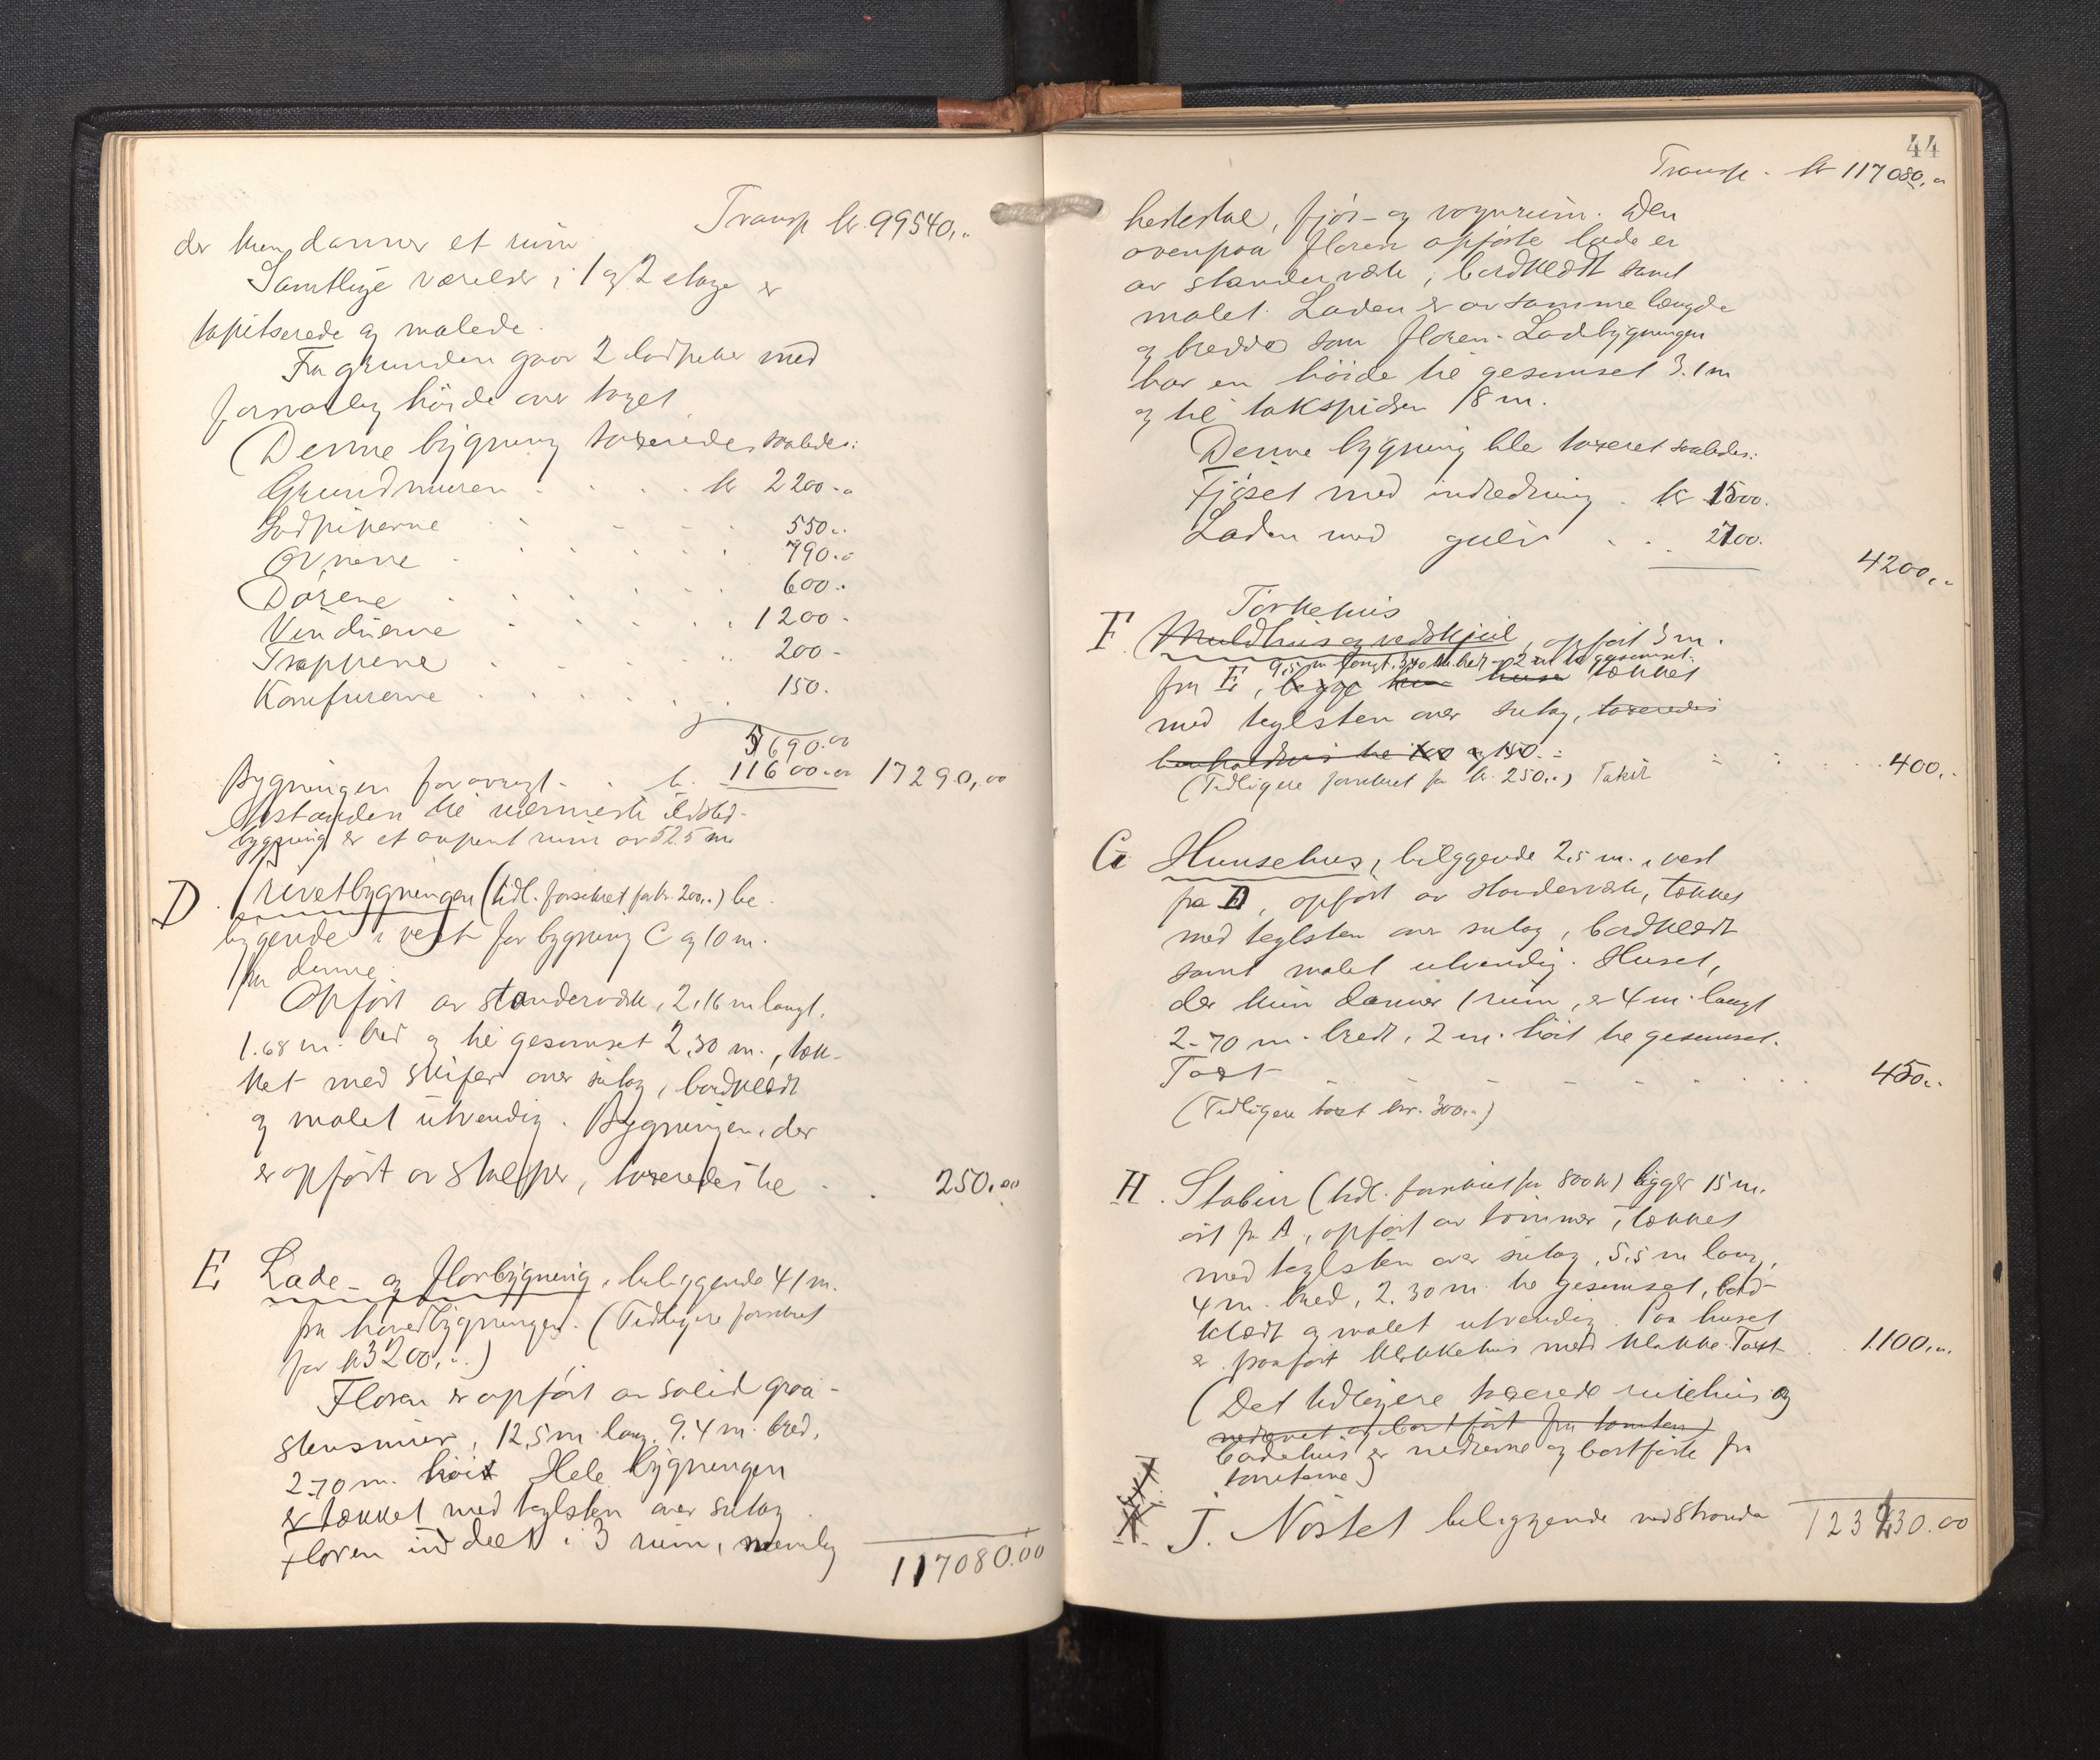 Transp kr. 99540,..
der kun danner et rum
Samtlige værelser i 1 og 2 etage er
tapitserede og malede.
Fra grunden gaar 2 lodpiber med
forsvarlig höide over taget
(Denne bygning taxeredes saaledes:
Grundmuren . . . . kr 2200...
Lodpiperne . . . . 550..
Ovnene . . . . 790...
Dörene . . . . 600..
Vinduerne . . . . 1200.
Trappene . . . . 200-
Komfurerne . . . . 150.
5690.00
Bygningen forövrigt . . kr. 11600.00 17290,00
Avstanden til nærmeste ildsted-
bygning er et aapent rum av 52.5 m
D. Privetbygningen (tidl. forsikret for kr. 200,..) be-
liggende i vest for bygning C og 10 m.
fra denne.
Opfört av standerverk, 2,16 m langt,
1.68 m. bred og til gesimset 2,30 m., tæk-
ket med skifer over sutag, bordklædt
og malet utvendig. Bygningen, der
er opfört av stolper, taxeredes til . . 250.00
E Lade- og Florbygning, beliggende 41 m.
fra hovedbygningen. (Tidligere forsikret
for kr 3200,..)
Floren er opfört av solid graa-
stensmur, 12,5 m lang, 9.4 m bred,
2-70 m. höit. Hele bygningen
er tækket med teglsten over sutag.
Floren inddelt i 3 rum, nemlig
117080.00
44
Transp. kr 117080,..
hestestal, fjös- og vognrum. Den
ovenpaa floren opförte lade er
av standerverk, bordklædt samt
malet. Laden er av samme længde
og bredde som floren. Ladebygningen
har en höide til gesimset 3.1 m
og til takspidsen 8 m.
Denne bygning ble taxeret saaledes:
Fjöset med indredning . kr 1500.
Laden med gulv . . . 2700.
4200,..
Törkehus
F. Muldhus og vedskjul, opfört 3 m.
9,5 m langt, 3,40 m. bredt - 2 m til gesimset.
fra E, begge huse tækket
med teglsten over sutag, taxeredes
henholdsvis til 100 og 150.-
(Tidligere forsikret for kr. 250..) Takst . . . 400,.
G Hunsehus, beliggende 2,5 m. i vest
fra D, opfört av standerverk, tækket
med teglsten over sutag, bordklædt
samt malet utvendig. Huset,
der kun danner 1 rum, er 4 m. langt
2-70 m. bredt, 2 m. höit til gesimset.
Taxt . . . . 450..
(Tidligere taxt kr. 300..)
H. Stabur (tidl. forsikret for 800 kr) ligger 15 m.
öst fra A, opfört av tömmer, tækket
med teglsten over sutag, 5,5 m lang,
4 m. bred, 2.30 m. til gesimset, bord-
klædt og malet utvendig. Paa huset
er paafört klokkehus med klokke. Taxt . . 1.100,..
(Det tidligere taxerede rullehus og
nedrevet og bortfört fra tomten)
badehus er nedrevne og bortförte fra
tomterne)
J. Nöstet beliggende ved Stranda 123230.00